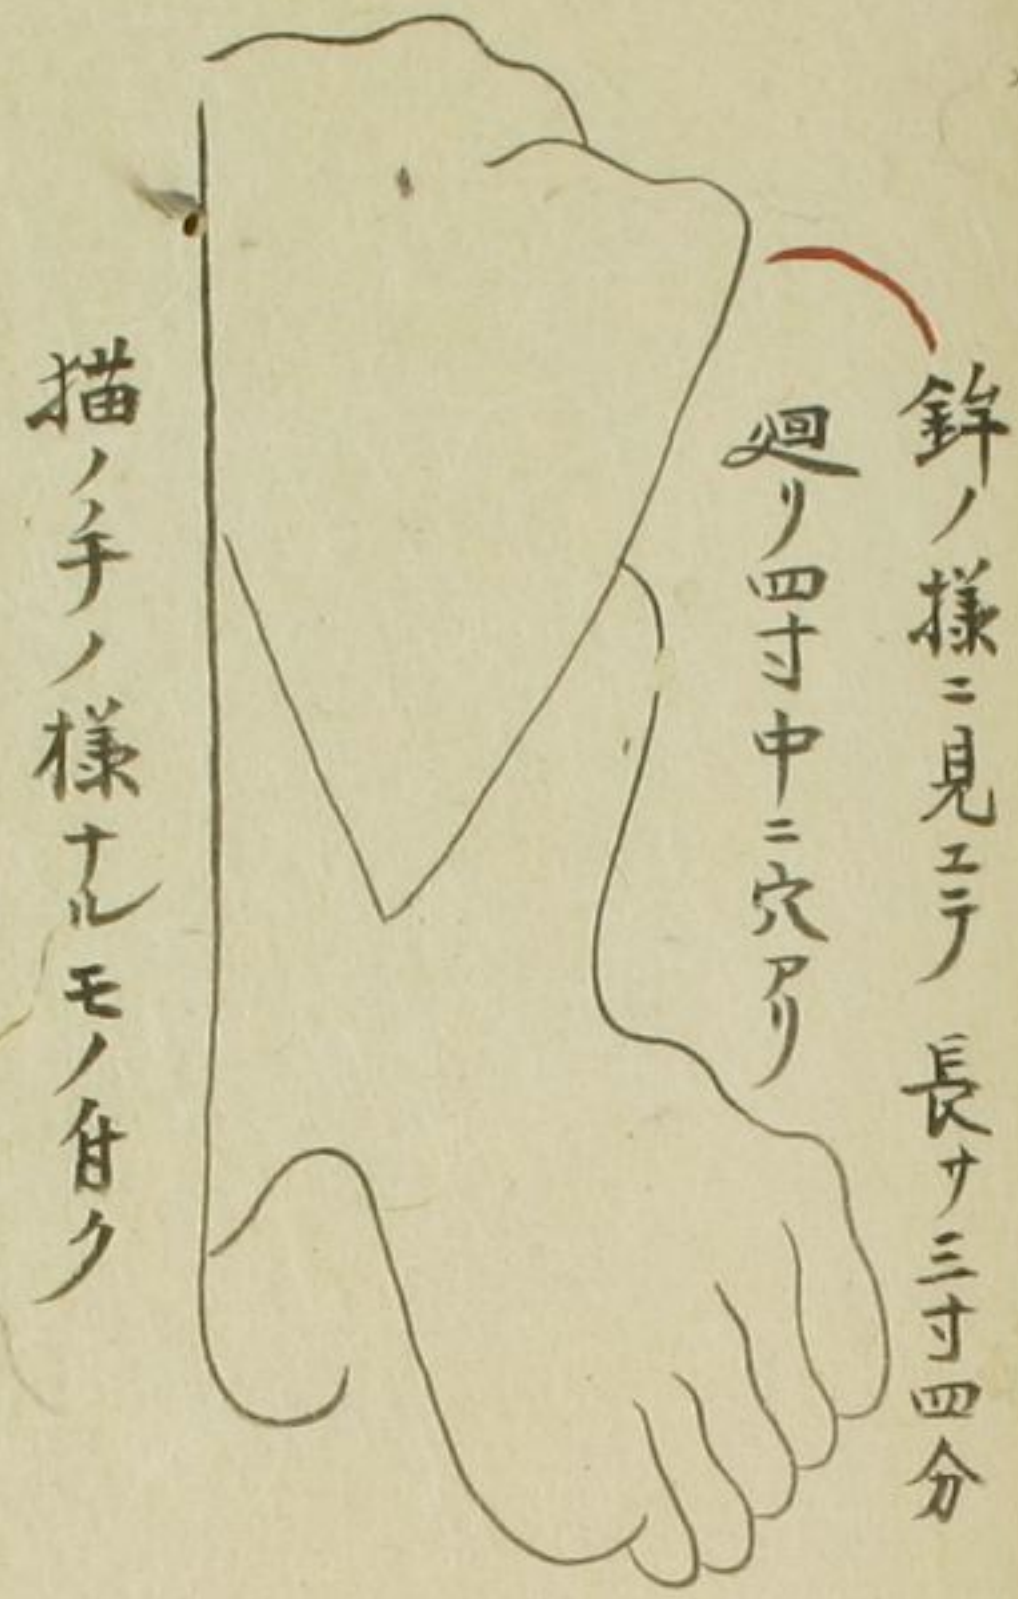 鉾ノ様ニ見エテ 長サ三寸四分
廻リ四寸中ニ穴アリ
描ノ手ノ様ナルモノ自ク